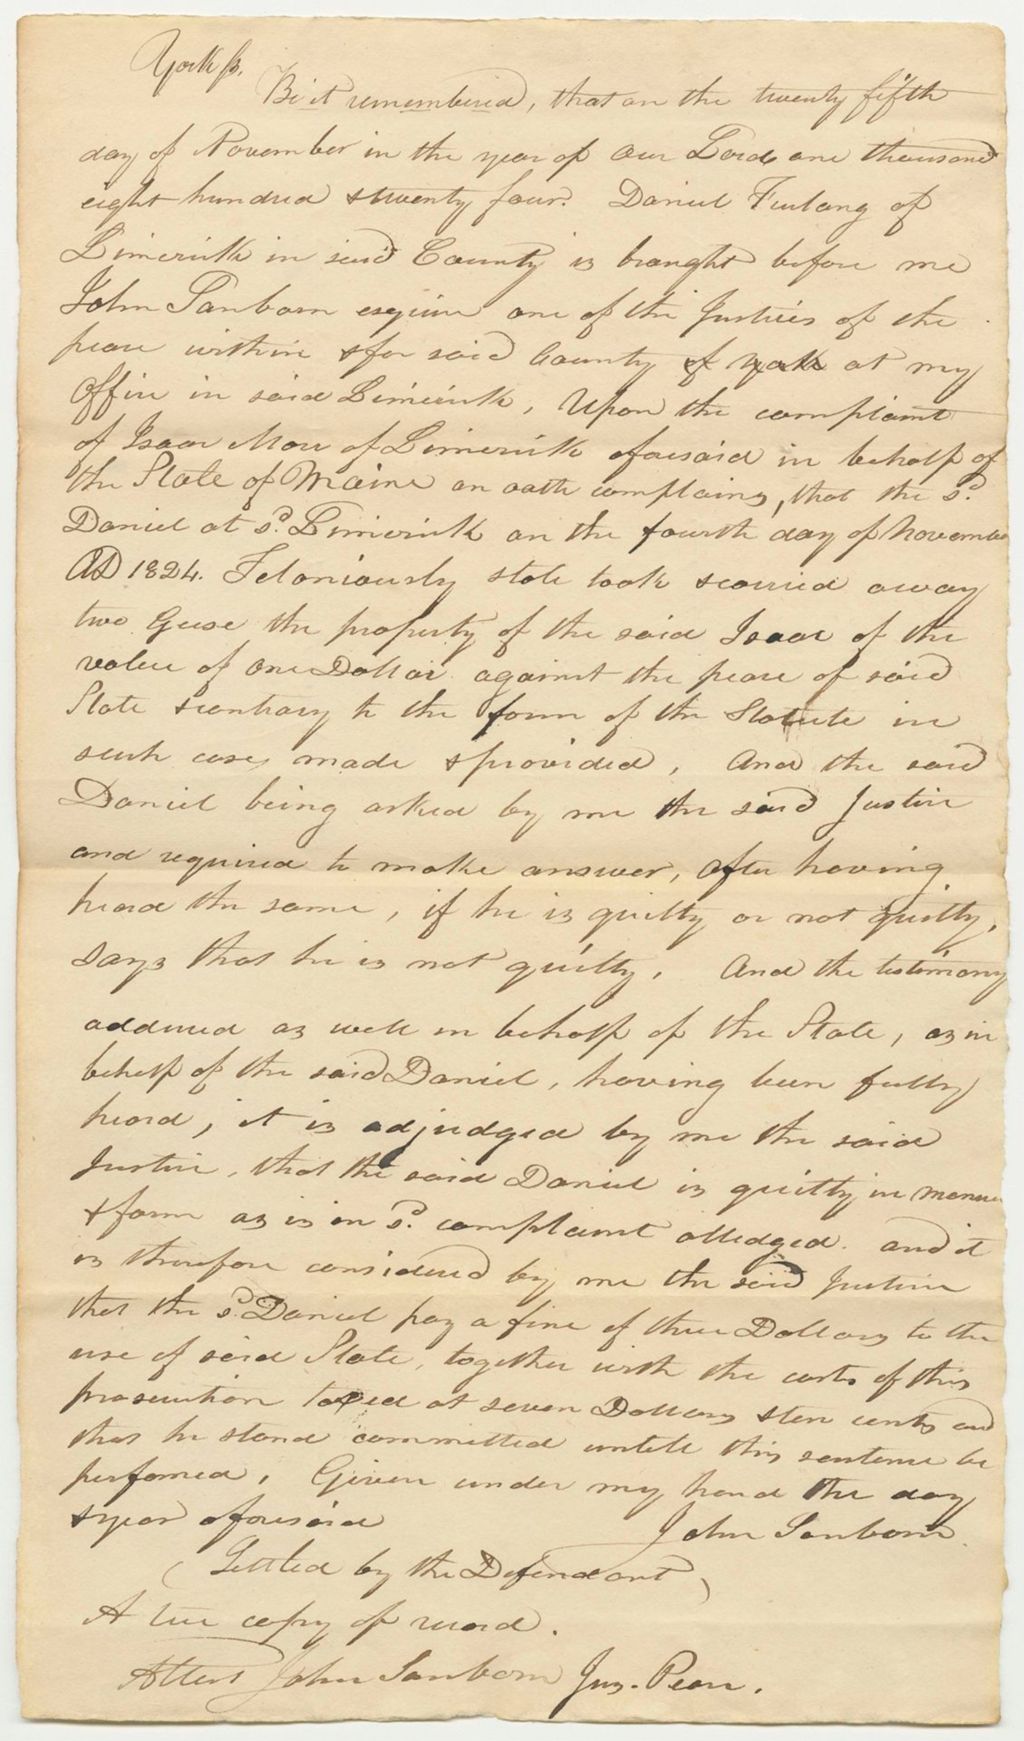 York ss.
Be it remembered, that on the twenty fifth
day of November in the year of our Lord one thousand
eight hundred & twenty four. Daniel Furlong of
Limerick in said County is brought before me
John Sanborn esquire one of the Justices of the
peace within & for said County of York at my
Office in said Limerick, Upon the complaint
of Isaac More of Limerick aforesaid in behalf of
the State of Maine on oath complains, that the sd.
Daniel at sd. Limerick on the fourth day of November
AD 1824. Feloniously stole took & carried away
two Geese the property of the said Isaac of the
value of one Dollar against the peace of said
State & contrary to the form of the Statute in
such case, made & provided, And the said
Daniel being asked by me the said Justice
and required to make answer, after having
heard the same, if he is guilty or not guilty,
says that he is not guilty. And the testimony
adduced as well in behalf of the State, as in
behalf of the said Daniel, having been fully
heard, it is adjudged by me the said
Justice, that the said Daniel is guilty in manner
& form as is in sd. complaint alledged. and it
is therefore considered by me the said Justice
that the sd. Daniel pay a fine of three Dollars to the
use of said State, together with the costs of this
prosecution taxed at seven Dollars & ten cents and
that he stand committed untill this sentence be
performed. Given under my hand the day
& year aforesaid John Sanborn.
(Settled by the Defendant)
A true copy of record.
Attest John Sanborn Jus. Peace.